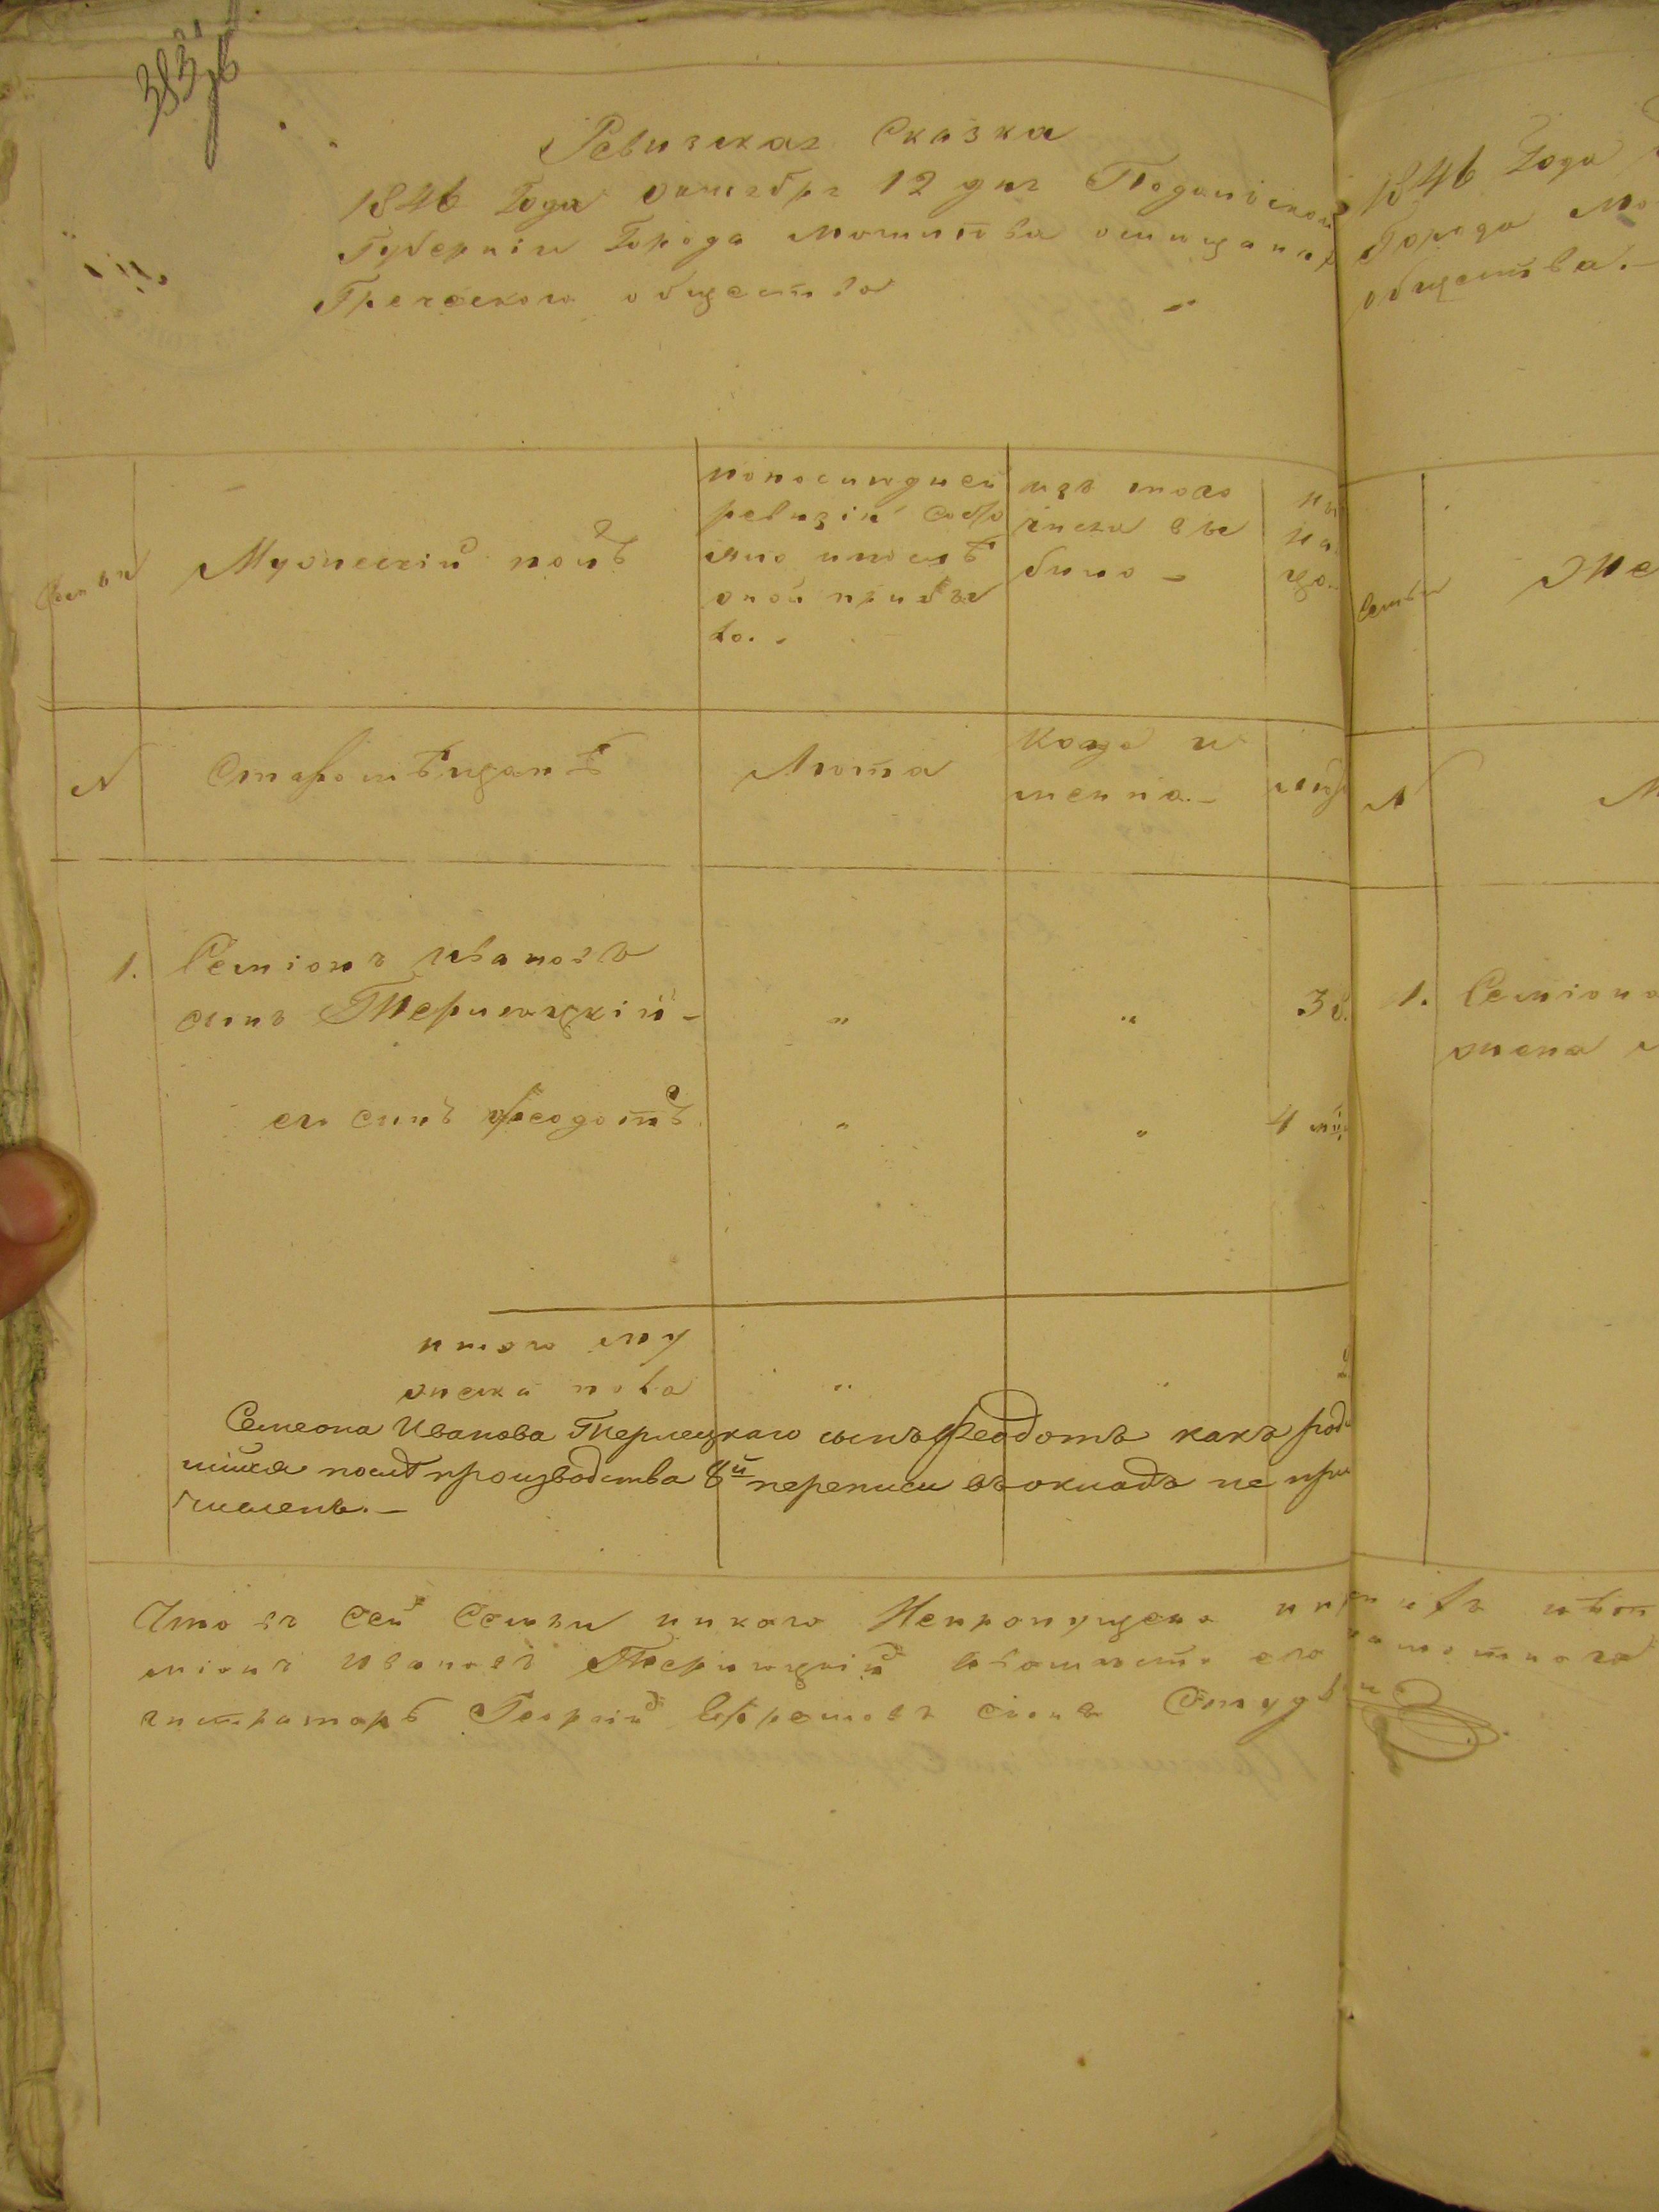 Ревизская Сказка
1846 Года октября 12 дня Подольской
Губернии Города Могилева о мещанах
Греческого общества
Семьи
Мужеский полъ
попоследней
ревизіи состо
яло ипослѣ
оной прибы
ло.
изъ того
числа вы
было
ны
на
цо.
№
Старомѣщанѣ
Лѣта
Когда и
менна.
лѣт
1.
Семіонъ Ивановъ
сынъ Терлецкій
"
"
38.
его синъ Феодотъ
"
"
4 мѣ
итого му
жеска пола
"
"
Семеона Иванова Терлецкаго сынъ Феодотъ какъ роди
вшийся послѣ производства 8й переписи въ окладъ не при
численъ.
Что въ сей Семьи никого Непропущено
міонъ Ивановъ Терлецкій его
гистраторъ Георгій Ефремовъ синъ
1846 Года
Города Мо
общества.
Семьи
Же
№
1.
Семіона
жена